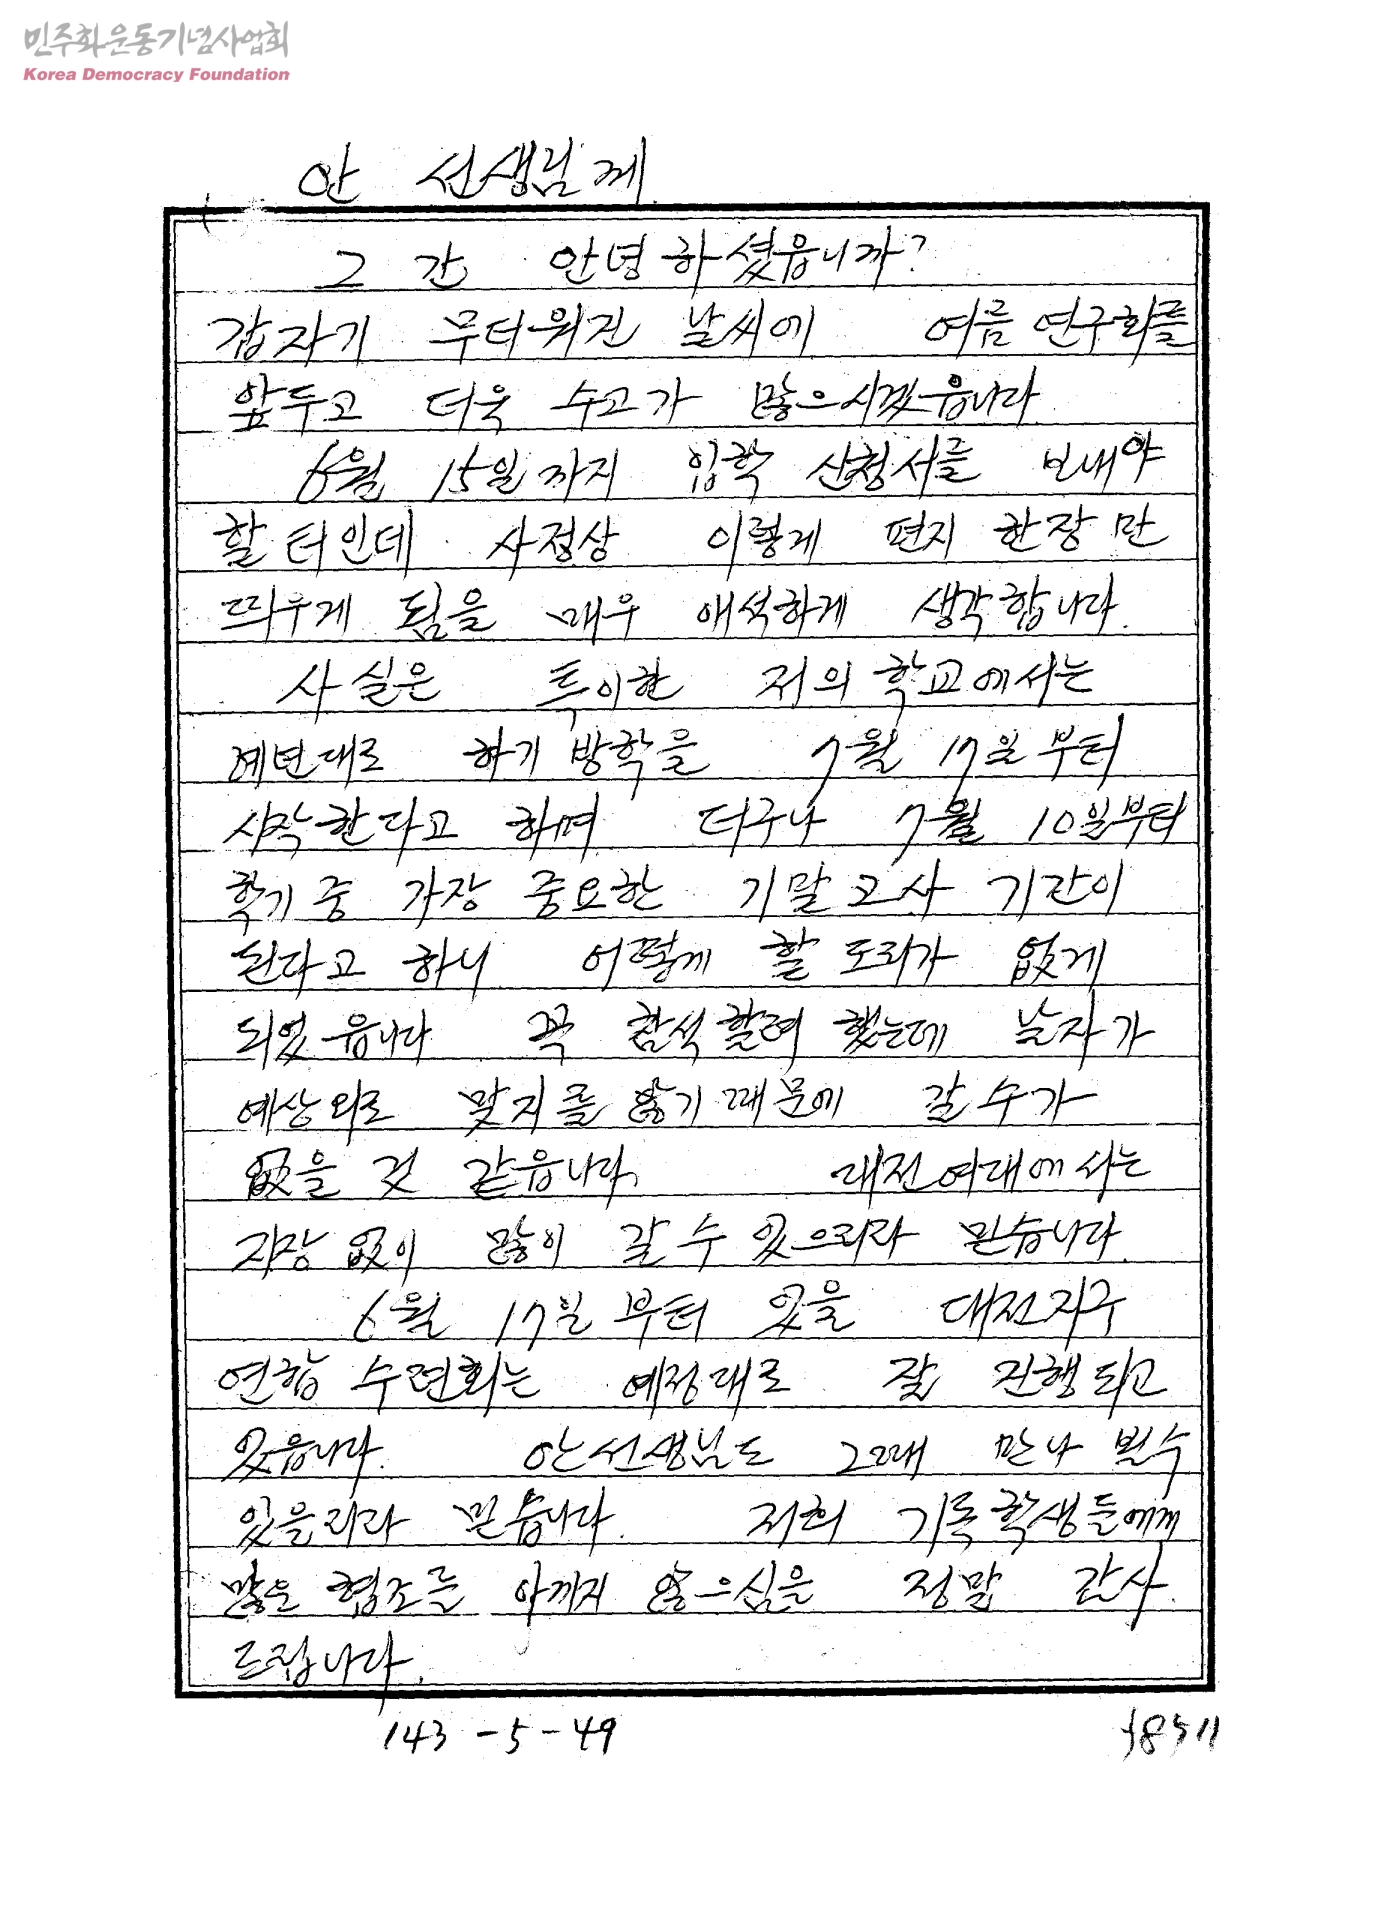 민주화운동기념사업회
Korea Democracy Foundation
안 선생님께.
그 간 안녕하셨읍니까?
갑자기 무더워진 날씨에 여름 연구회를
앞두고 더욱 수고가 많으시겠읍니다.
6월 15일까지 입학 신청서를 보내야
할 터인데 사정상 이렇게 편지 한장 만
띄우게 됨을 매우 애석하게 생각합니다.
사실은 특이한 저의 학교에서는
예년대로 하기 방학을 7월 17일부터
시작한다고 하며 더구나 7월 10일부터
학기 중 가장 중요한 기말고사 기간이
된다고 하니 어떻게 할 도리가 없게
되었읍니다 꼭 참석할려 했는데 날자가
예상외로 맞지를 않기 때문에 갈 수가
없을 것 같읍니다. 대전여대에서는
지장 없이 많이 갈 수 있으리라 믿습니다.
6월 17일 부터 있을 대전지구
연합 수련회는 예정대로 잘 진행되고
있읍니다. 안선생님도 그때 만나 뵐수
있을리라 믿습니다. 저희 기독학생들에게
많은 협조를 아끼지 않으심을 정말 감사
드립니다.
143-5-49